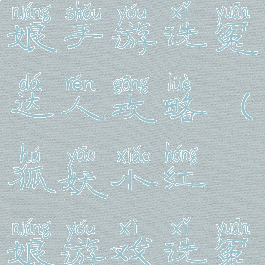 niáng shǒu yóu xǐ yuān
娘手游洗冤
dá rén gōng lüè
达人攻略(
hú yāo xiǎo hóng
狐妖小红
niáng yóu xì xǐ yuān
娘游戏洗冤